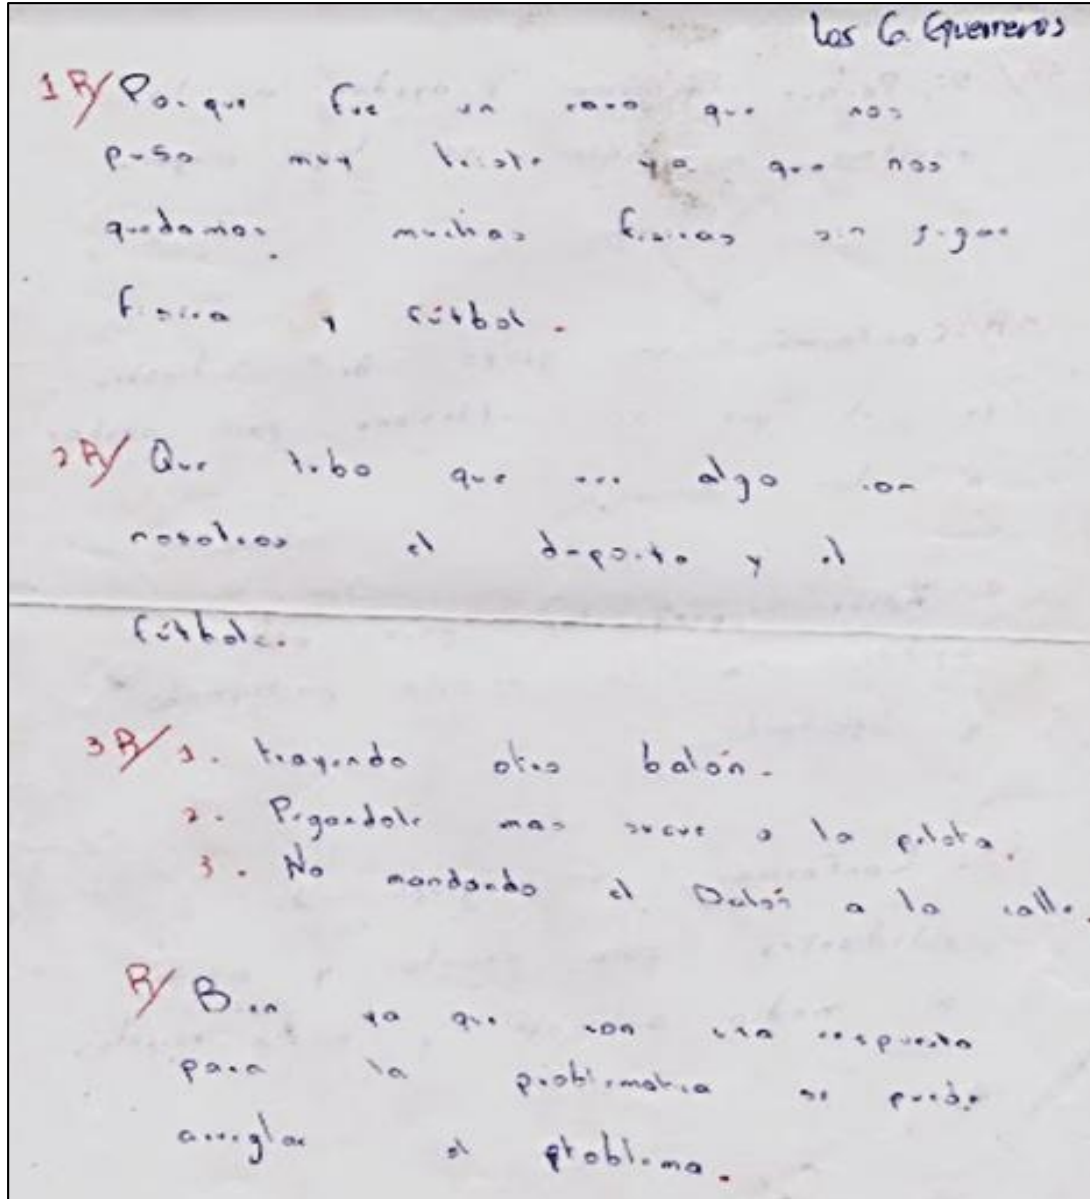 Los G. Guerreros
1 R/ Porque fue un caso que nos
puso muy triste ya que nos
quedamos muchas fisicas sin jugar
fisica y fútbol.
2 R/ Que tubo que ver algo con
nosotros el deporte y el
fútbol.
3 R/ 1. trayendo otro balón.
2. Pegandole mas suave a la pelota.
3. No mandando el Balón a la calle.
R/ Bien ya que con esa respuesta
para la problematica se puede
arreglar el problema.